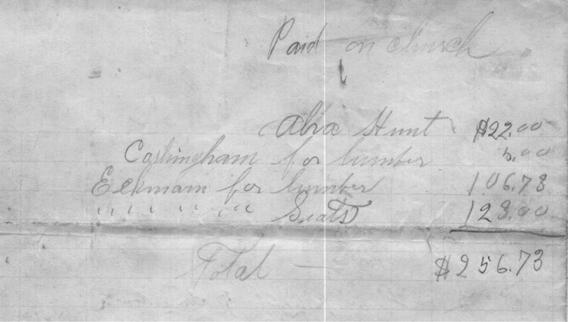 Paid on church
Hunt $22.00
for lumber 5.00
Eckmam for lumber 106.73
" " " " " Seats 123.00
Total — $256.73